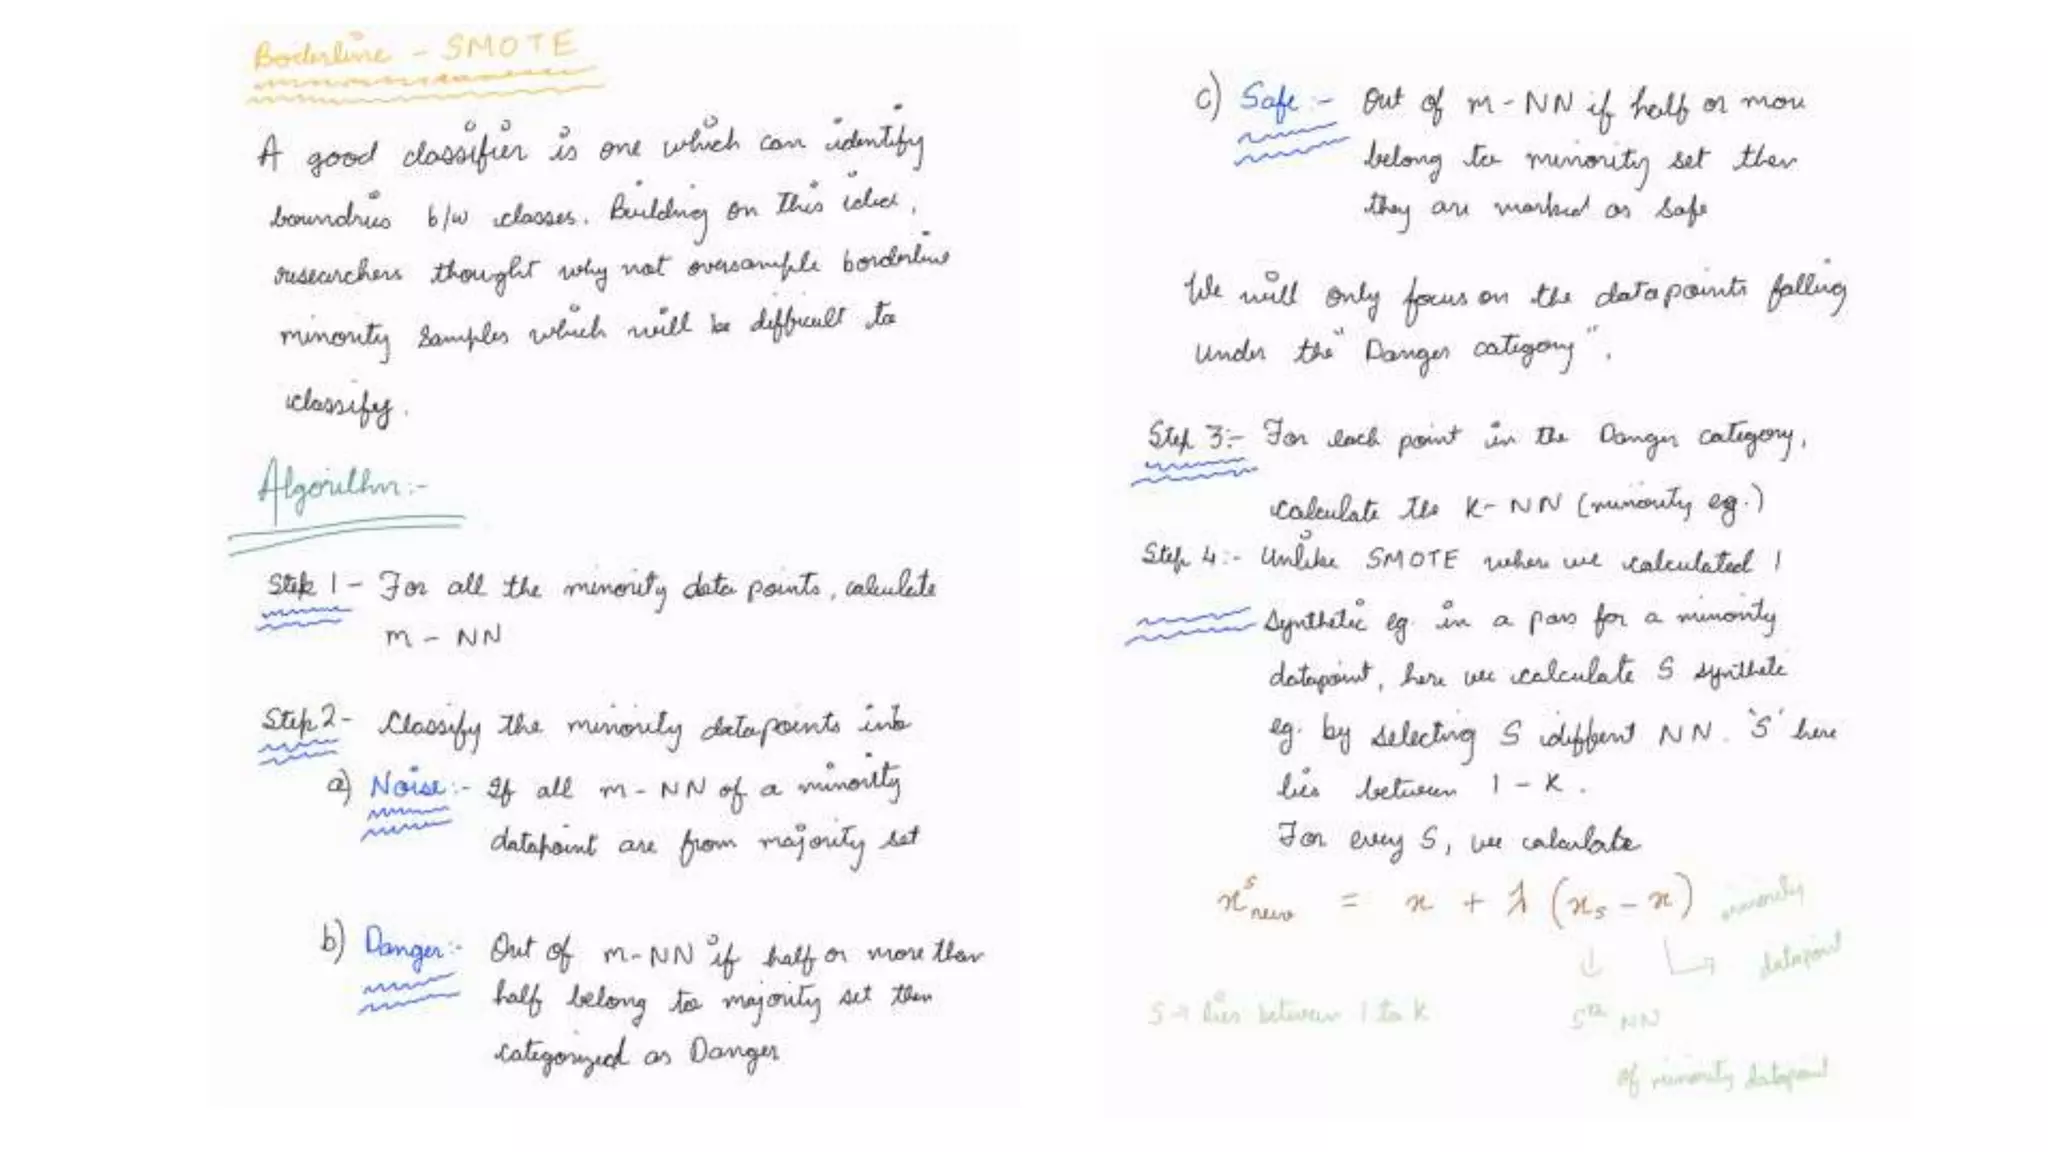 Borderline - SMOTE
A good classifier is one which can identify
boundries b/w classes. Building on this idea,
researchers thought why not oversample borderline
minority samples which will be difficult to
classify.
Algorithm:-
Step 1 - For all the minority data points, calculate
m - NN
Step 2 - Classify the minority datapoints into
a) Noise:- If all m - NN of a minority
datapoint are from majority set
b) Danger:- Out of m-NN if half or more than
half belong to majority set then
categorized as Danger
c) Safe:- Out of m-NN if half or more
belong to minority set then
they are marked as Safe
We will only focus on the datapoints falling
under the "Danger category".
Step 3:- For each point in the Danger category,
calculate the K-NN (minority eg.)
Step 4:- Unlike SMOTE where we calculated 1
synthetic eg. in a pass for a minority
datapoint, here we calculate S synthetic
eg. by selecting S different NN. 'S' here
lies between 1 - K.
For every S, we calculate
x^s_new = x + λ (x_s - x) minority
datapoint
S → lies between 1 to K
Sth NN
of minority datapoint